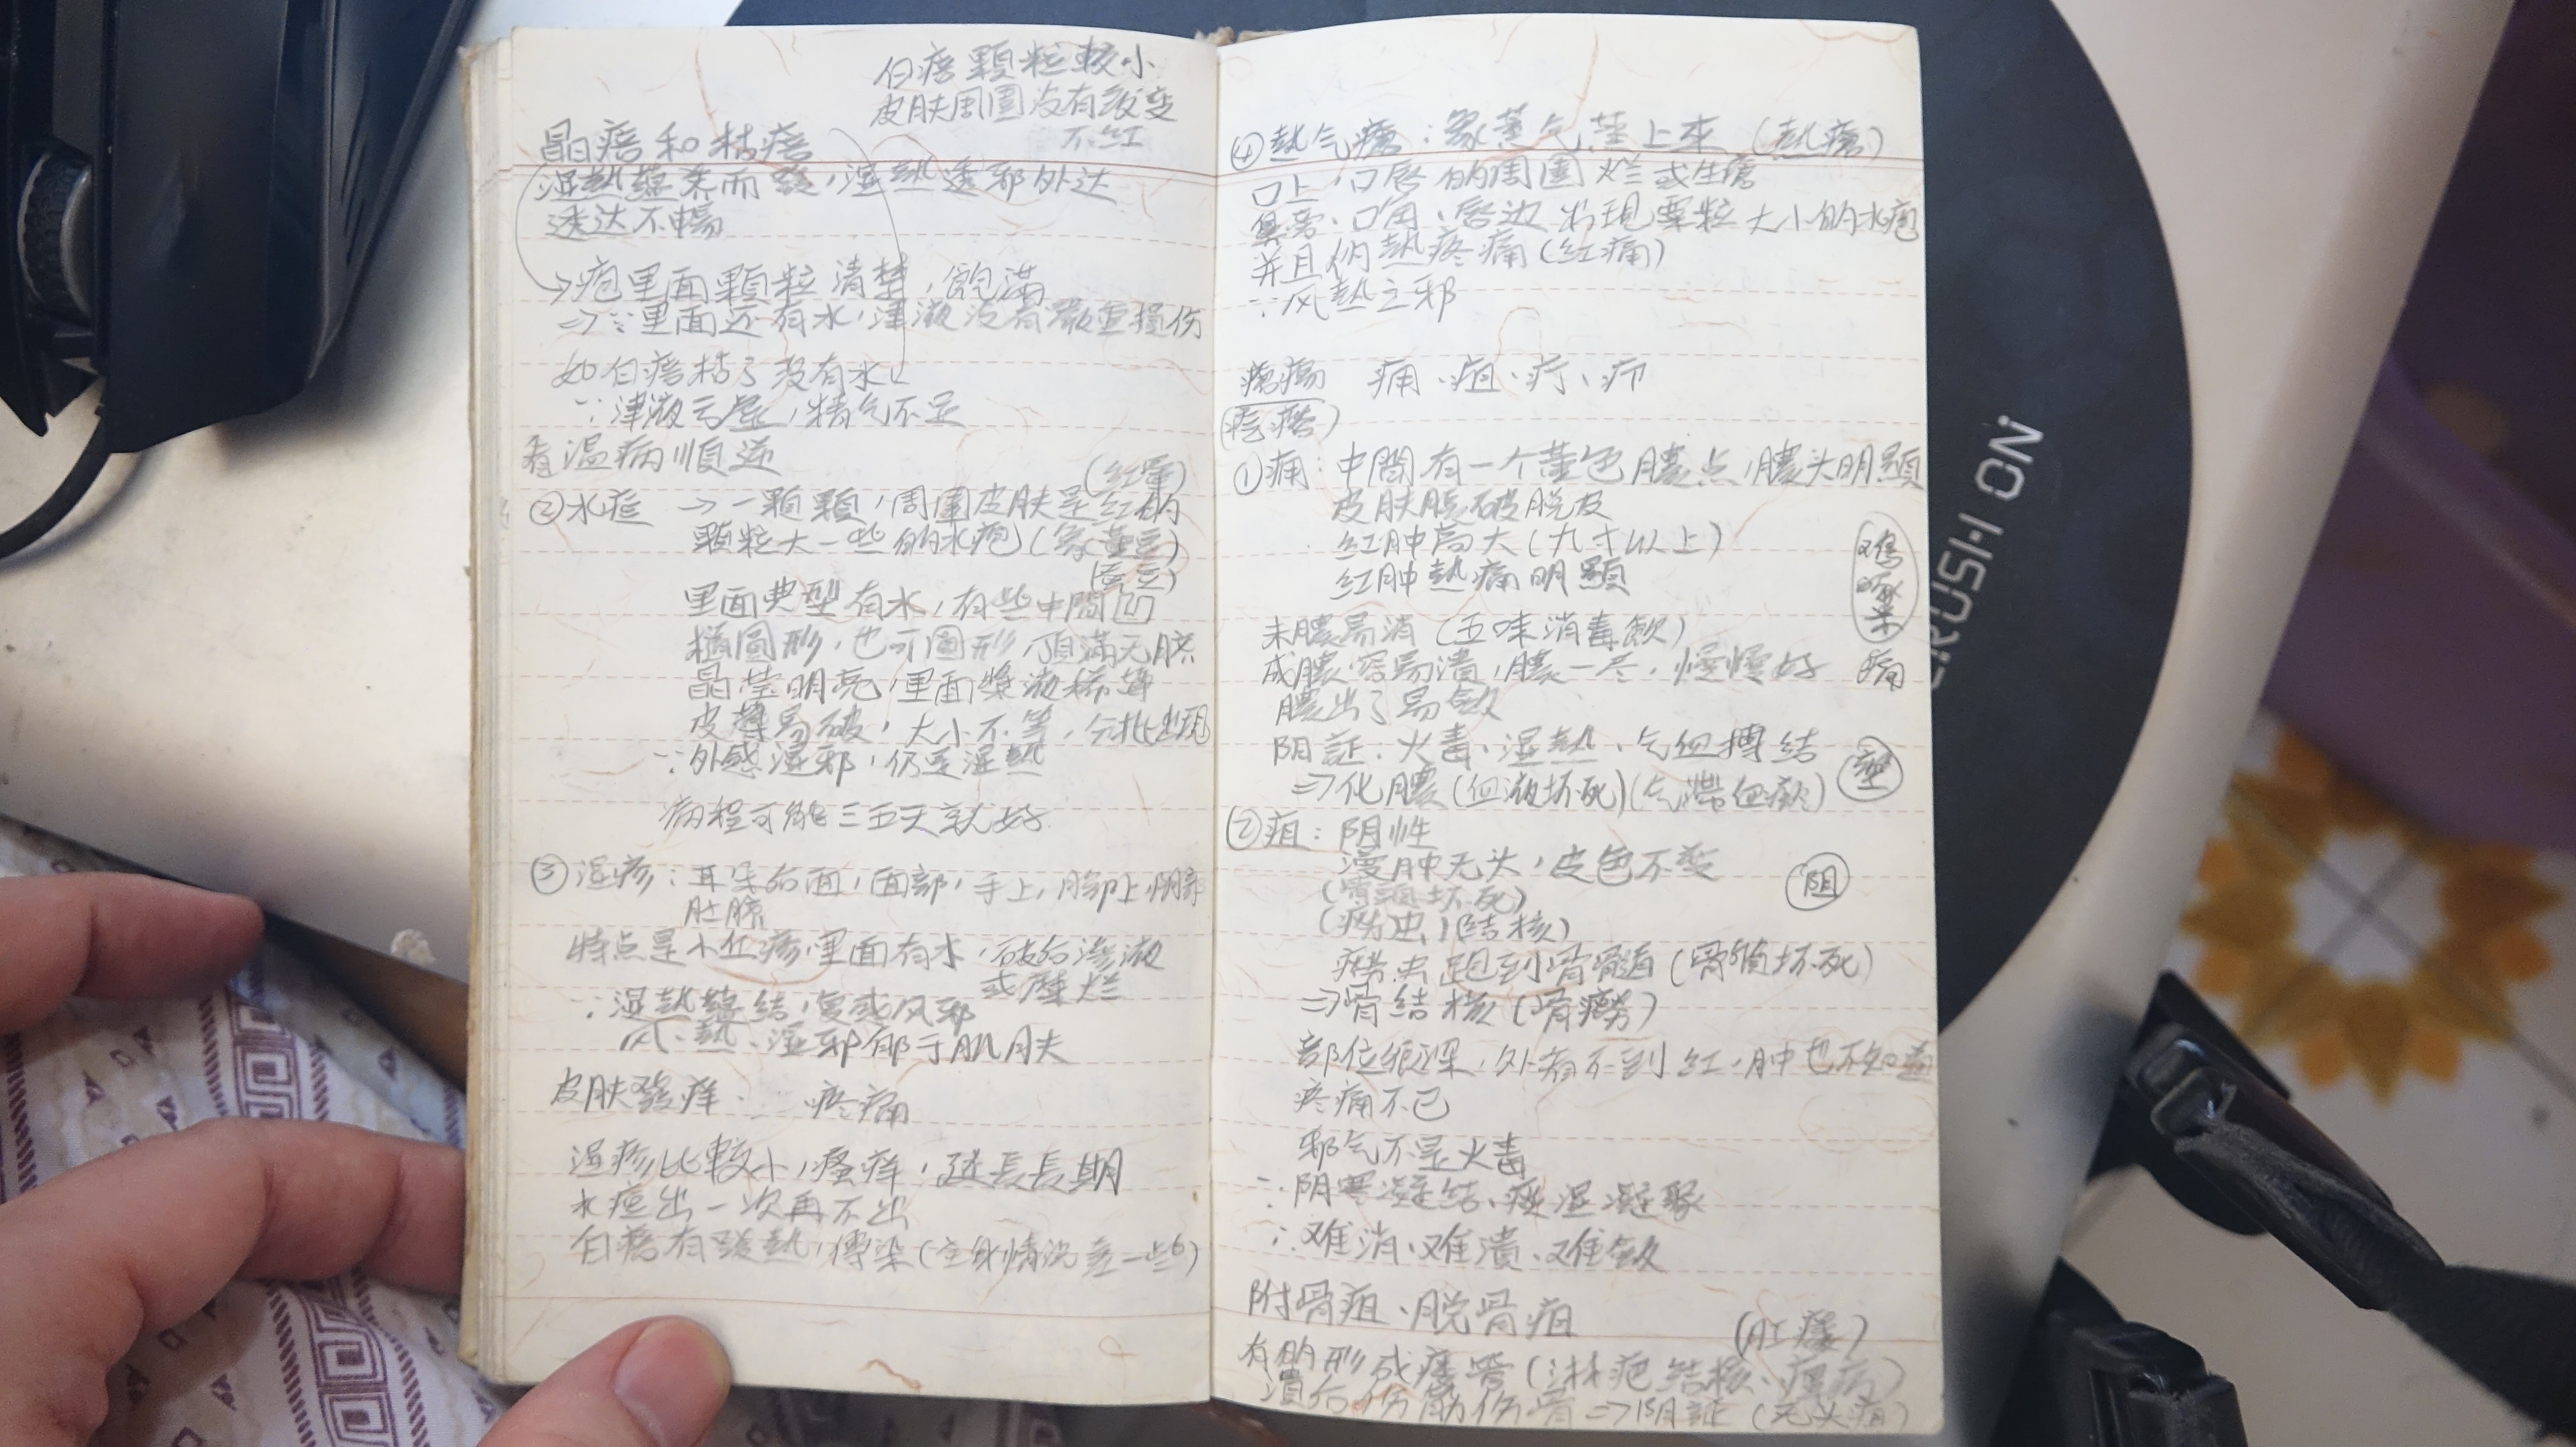 白㾦顆粒較小
皮肤周圍没有改变
不紅
晶㾦和枯㾦
湿熱蕴蒸而發，湿熱透邪外达
透达不暢
→疱里面顆粒清楚，飽滿
⇒∵里面还有水，津液没有嚴重損伤
如白㾦枯了没有水
∵津液亏虚，精气不足
看温病順逆
(紅暈)
②水痘 →一顆顆，周圍皮肤是紅的
顆粒大一些的水疱(象黄豆)
(豌豆)
里面典型有水，有些中間凹
橢圓形，也可圓形，頂滿无臍
晶莹明亮，里面漿液稀薄
皮薄易破，大小不等，分批出現
∵外感湿邪，仍是湿熱
病程可能三五天就好
③湿疹：耳朵后面，面部，手上，脚上，阴部
肚臍
特点是小红疹，里面有水，破后滲液
或糜烂
∵湿熱蕴結，复感风邪
风、熱、湿邪郁于肌肤
皮肤發痒 疼痛
湿疹比較小，瘙痒，延長長期
水痘出一次再不出
白㾦有發熱，傳染(全身情況重一些)
④熱气瘡：象蒸气蒸上来 (熱瘡)
口上，口唇的周圍烂或生瘡
鼻旁、口角、唇边出現粟粒大小的水疱
并且灼熱疼痛(紅痛)
∵风熱之邪
瘡瘍 痈、疽、疔、疖
疙瘩
①痈：中間有一个黄色膿点，膿头明顯
皮肤脱破脱皮
紅肿高大(九寸以上)
紅肿熱痛明顯
鸡
啄
米
病
未膿易消 (五味消毒飲)
成膿，容易潰，膿一尽，慢慢好
膿出了易斂
阴証：火毒、湿熱、气血搏结
⇒化膿(血液坏死)(气滯血瘀)
壅
②疽：阴性
漫肿无头，皮色不变
(骨頭坏死)
(痨虫，結核)
阻
痨虫跑到骨骼道(骨質坏死)
⇒骨結核(骨癆)
部位很深，外看不到红，肿也不知道
疼痛不已
邪气不是火毒
∵阴寒凝结、痰湿凝聚
∴难消、难潰、难斂
附骨疽、脱骨疽
(肛瘻)
有的形成瘻管(淋疤結核、瘰疬)
潰后伤筋伤骨⇒阴証(无头疽)
CRUSH ON